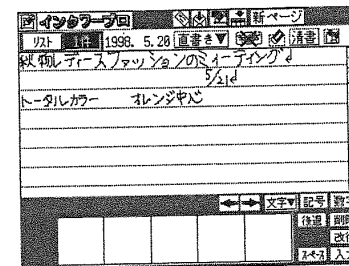 インクワープロ 新ページ
リスト 1件 1998. 5.20 直書き▼ 清書
秋物レディースファッションのミーティング↲
5/21↲
トータルカラー オレンジ中心
文字▼ 記号 数字
後退 削
改行
スペース 入